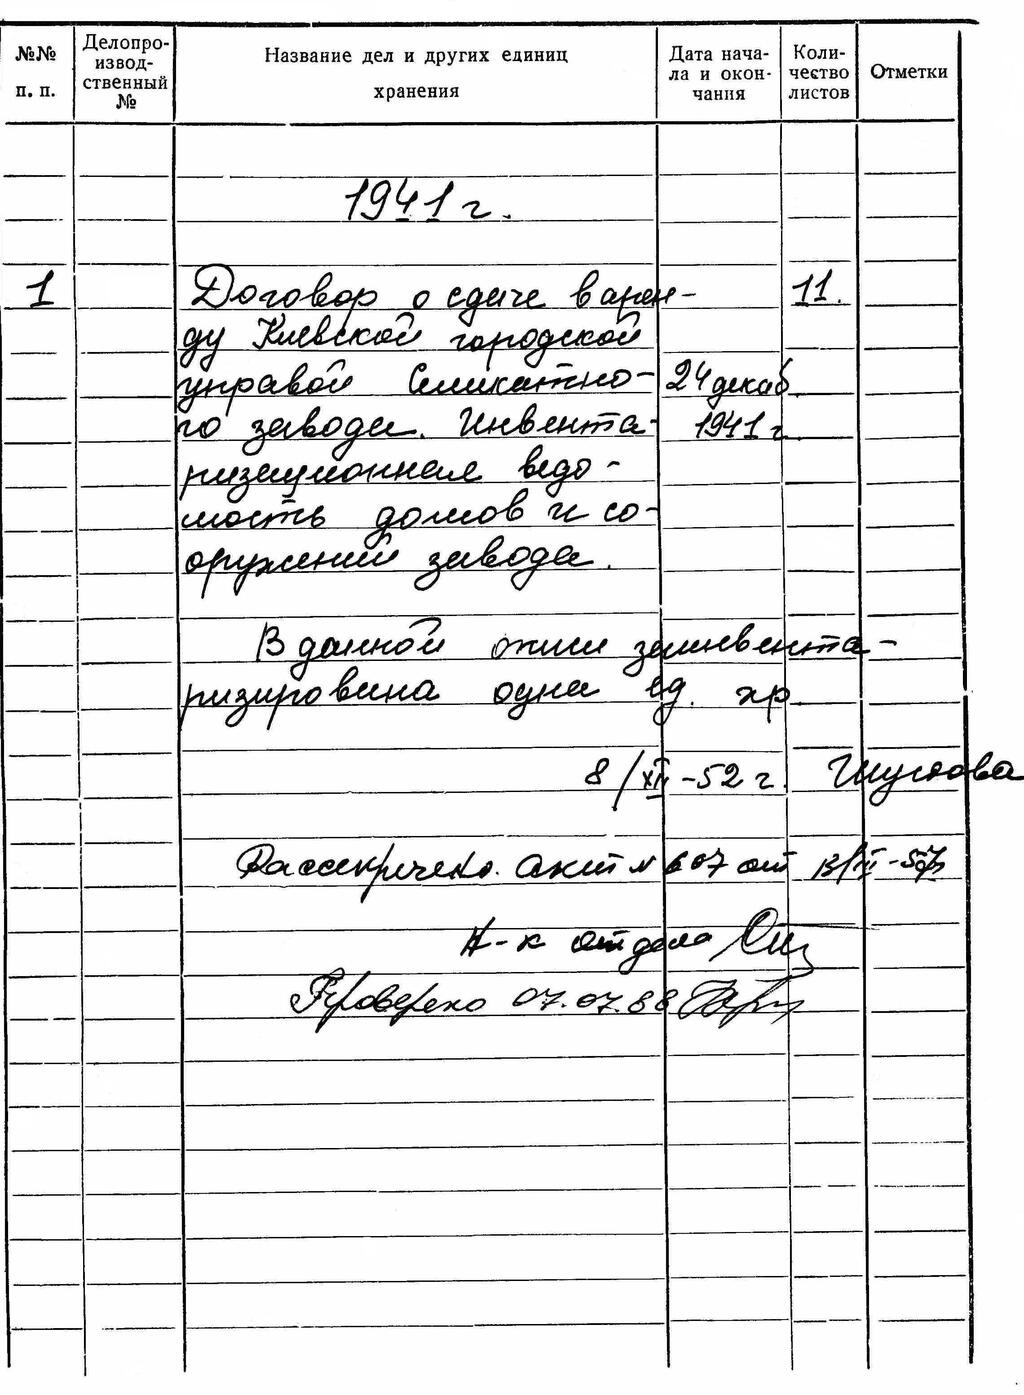 №№ п. п.
Делопро-
извод-
ственный
№
Название дел и других единиц
хранения
Дата нача-
ла и окон-
чания
Коли-
чество
листов
Отметки
1941 г.
1 Договор о сдаче в арен- 11.
ду Киевской городской
управой Силикатно- 24 декаб
го завода. Инвента- 1941 г.
ризационная ведо-
мость домов и со-
оружений завода.
В данной описи заинвента-
ризирована одна ед. хр.
8/XII-52 г. Шустова
Рассекречено. Акт № 607 от
Н-к отдела
Проверено 07.07.88